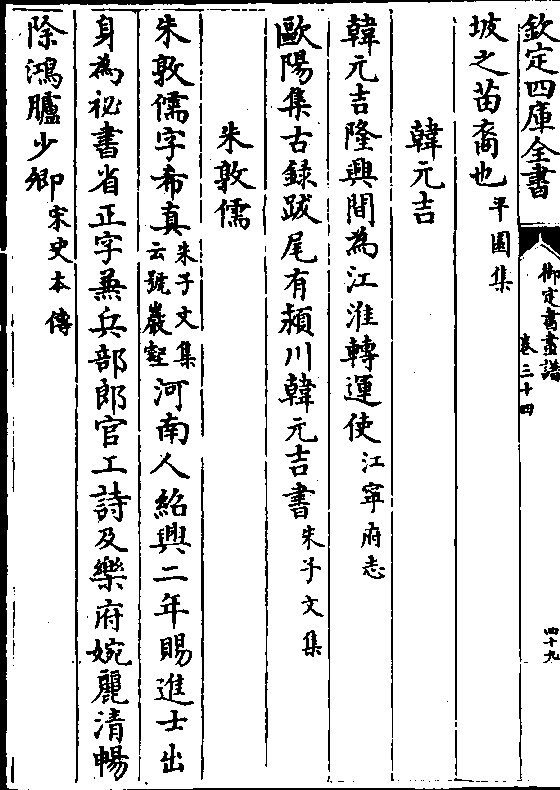 欽定四庫全書
御定書畫譜
卷三十四
四十九
坡之苗裔也平園集
韓元吉
韓元吉隆興間為江淮轉運使江寧府志
歐陽集古録跋尾有潁川韓元吉書朱子文集
朱敦儒
朱敦儒字希真朱子文集云號巖壑河南人紹興二年賜進士出
身為祕書省正字兼兵部郎官工詩及樂府婉麗清暢
除鴻臚少卿宋史本傳